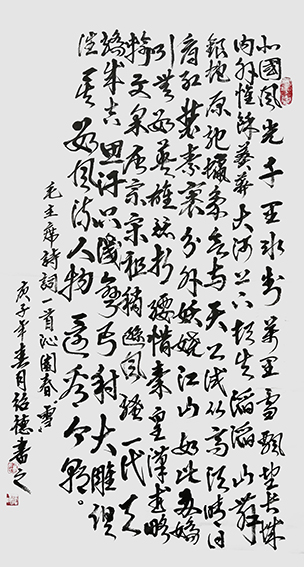 北國風光千里冰封萬里雪飄望長城
內外惟餘莽莽大河上下頓失滔滔山舞
銀蛇原馳蠟象欲與天公試比高須晴日
看紅裝素裹分外妖嬈江山如此多嬌
引無數英雄競折腰惜秦皇漢武略
輸文采唐宗宋祖稍遜風騷一代天
驕成吉思汗只識彎弓射大雕俱
往矣數風流人物還看今朝。
毛主席詩詞一首沁園春雪
庚子年春月紹德書之